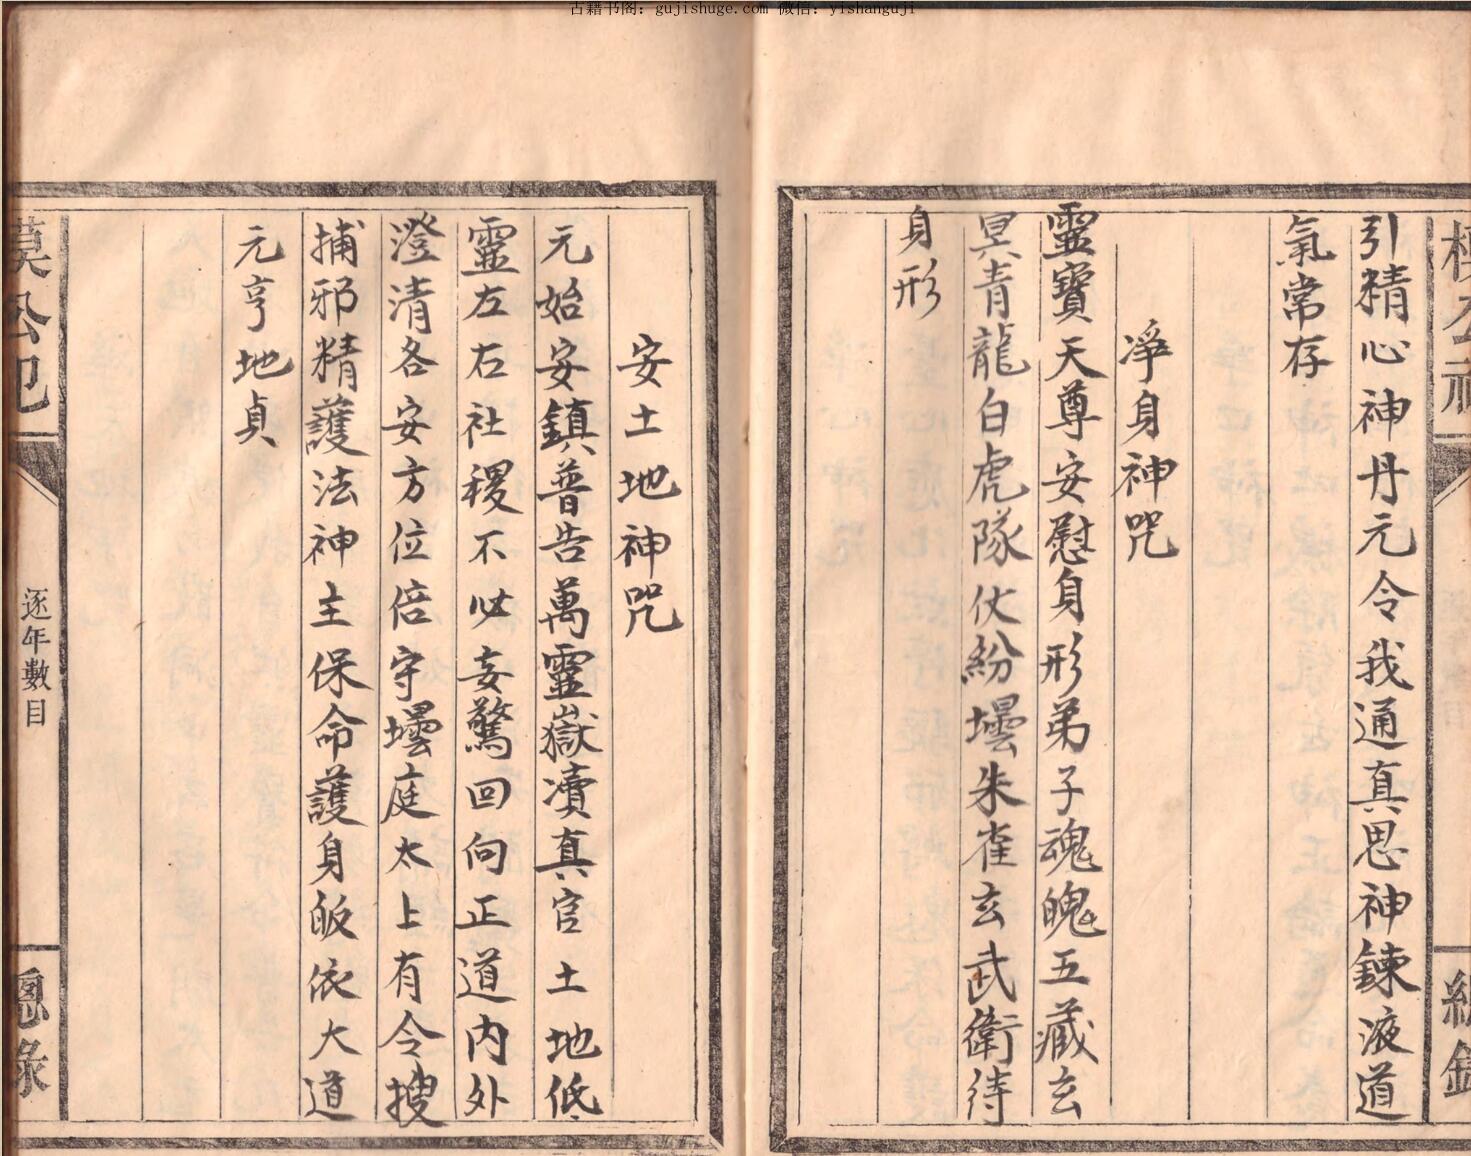 古籍书阁：gujishuge.com 微信：yishanguji
引精心神丹元令我通真思神鍊液道
氣常存
淨身神咒
靈寶天尊安慰身形弟子魂魄五藏玄
冥青龍白虎隊仗紛壜朱雀玄武衛待
身形
安土地神咒
元始安鎮普告萬靈嶽瀆真官土地低
靈左右社稷不必妄驚回向正道內外
澄清各安方位倍守壜庭太上有令搜
捕邪精護法神主保命護身皈依大道
元亨地貞
逐年數目